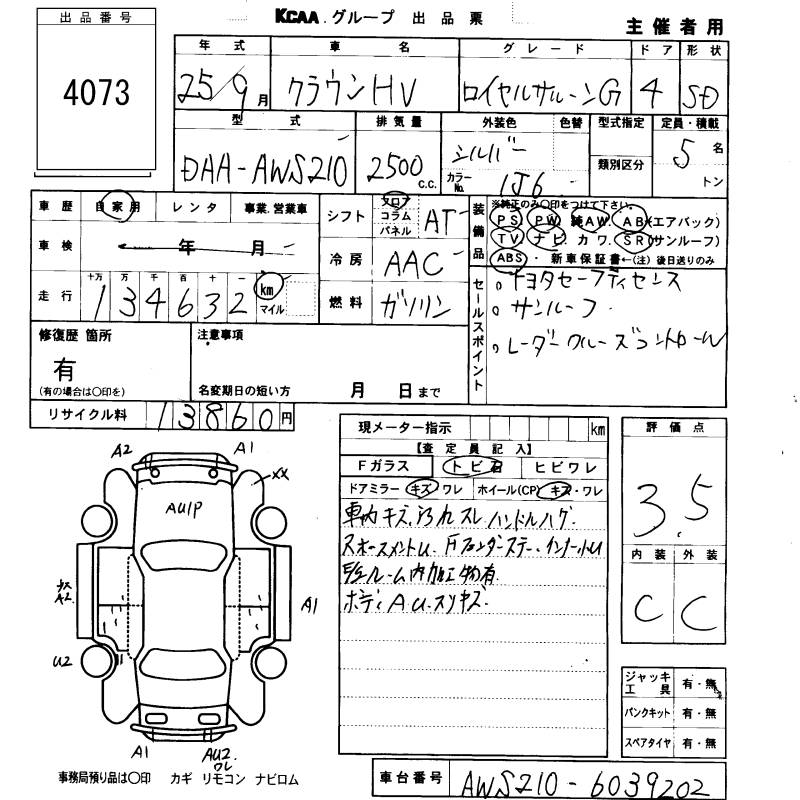 出品番号
4073
KCAA グループ 出品票
主催者用
年式 車名 グレード ドア 形状
25/9月 クラウンHV ロイヤルサルーンG 4 SD
型式 排気量 外装色 色替 型式指定 定員・積載
DAA-AWS210 2500 C.C. シルバー カラーNo. 1J6 類別区分 5名 トン
車歴 自家用 レンタ 事業、営業車
車検 年 月
走行 十万 万 千 百 十 一
134632 km マイル
シフト フロア コラム パネル AT
冷房 AAC
燃料 ガソリン
装備品 ※純正のみ〇印をつけて下さい。
PS PW 純AW AB(エアバッグ)
TV ナビ カワ SR(サンルーフ)
ABS ・ 新車保証書←(注)後日送りのみ
セールスポイント
トヨタセーフティセンス
サンルーフ
レーダークルーズコントロール
修復歴 箇所
有
(有の場合は〇印を)
注意事項
名変期日の短い方 月 日まで
リサイクル料 13860円
現メーター指示 km
【査定員記入】
Fガラス トビ石 ヒビワレ
ドアミラー キズ ワレ ホイール(CP) キズ・ワレ
車内キズ、汚れ スレ ハンドルハゲ
ボディAU.スリキズ
評価点
3.5
内装 外装
C C
ジャッキ工具 有・無
パンクキット 有・無
スペアタイヤ 有・無
A2 A1
XX
AU1P
A2
A1
U2
A1 AU2
ワレ
事務局預り品は〇印 カギ リモコン ナビロム
車台番号 AWS210-6039202